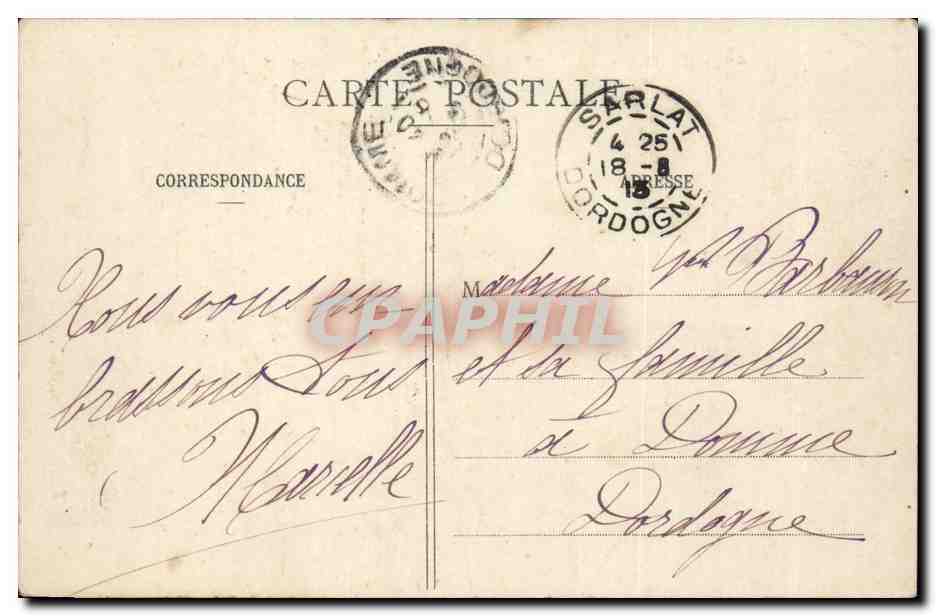 CARTE POSTALE
SARLAT
4 25
18 -8
13
DORDOGNE
DOMME
DORDOGNE
CORRESPONDANCE
ADRESSE
Nous vous em
brassons tous
Marcelle
Madame Vve Barbaum
et sa famille
à Domme
Dordogne
CPAPHIL